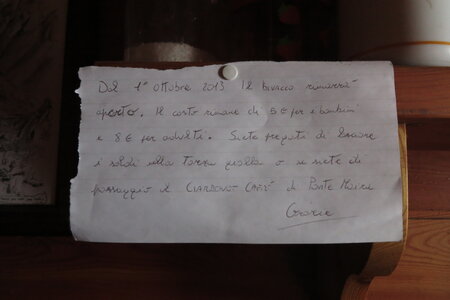 Dal 1° ottobre 2013 Il bivacco rimarrà
aperto. Il costo rimane di 5€ per i bambini
e 8€ per adulti. Siete pregati di lasciare
i soldi alla tazza gialla o se siete di
passaggio al GIARDINO CAFÈ di Ponte Maira
Grazie